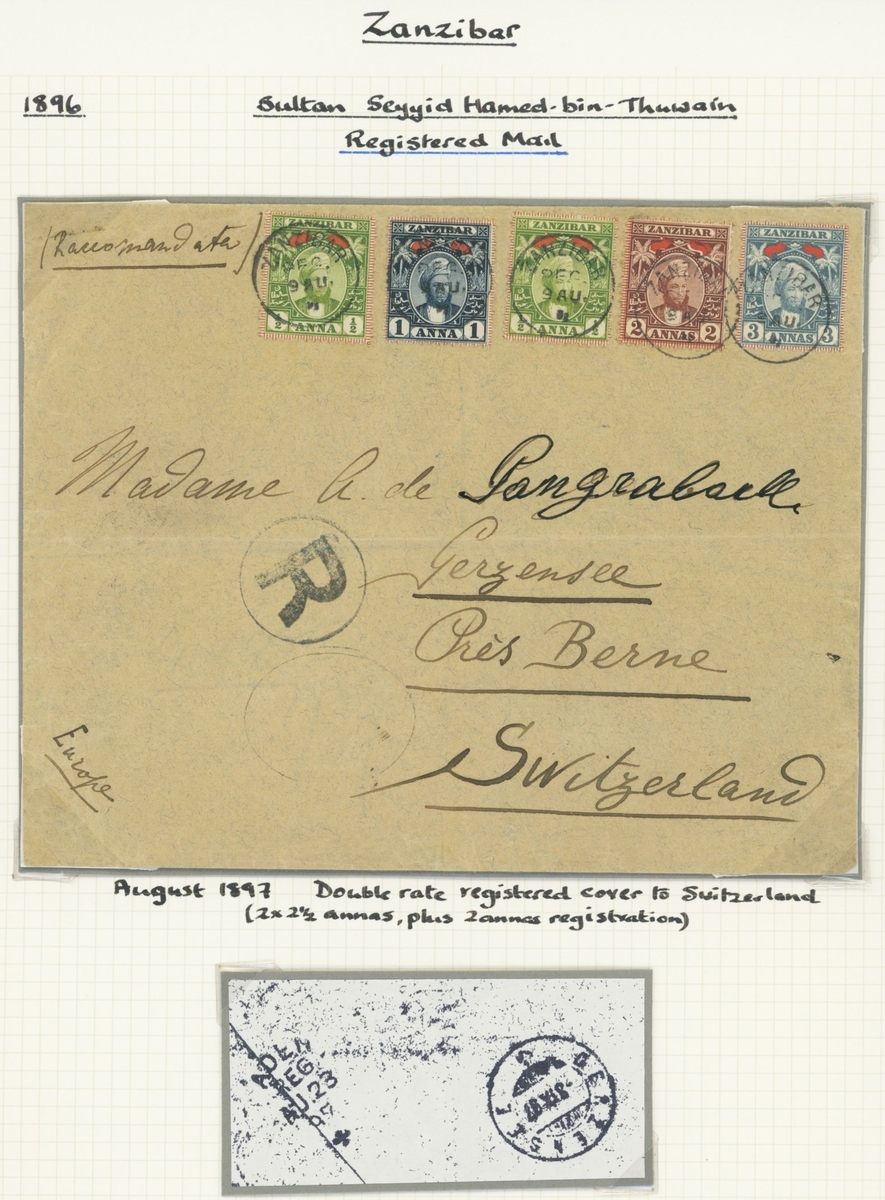 Zanzibar
1896 Sultan Seyyid Hamed-bin-Thuwain
Registered Mail
(Raccomandata)
ZANZIBAR ZANZIBAR ZANZIBAR ZANZIBAR ZANZIBAR
½ ANNA ½ 1 ANNA 1 ½ ANNA ½ 2 ANNAS 2 3 ANNAS 3
ZANZIBAR
REG.
9 AU.
ZANZIBAR
REG.
9 AU.
Madame A. de
R
Gerzensee
Près Berne
Switzerland
Europe
August 1897 Double rate registered cover to Switzerland
(2x2½ annas, plus 2annas registration)
ADEN
REG
AU.23
97
GERZENSEE